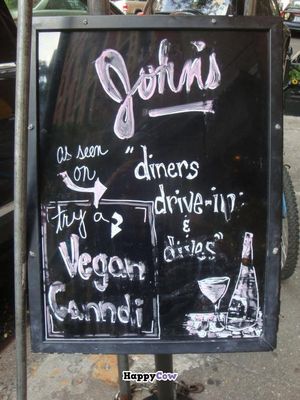 John's
as seen on
"diners drive-in: & dives"
try a
Vegan
Canndi
HappyCow